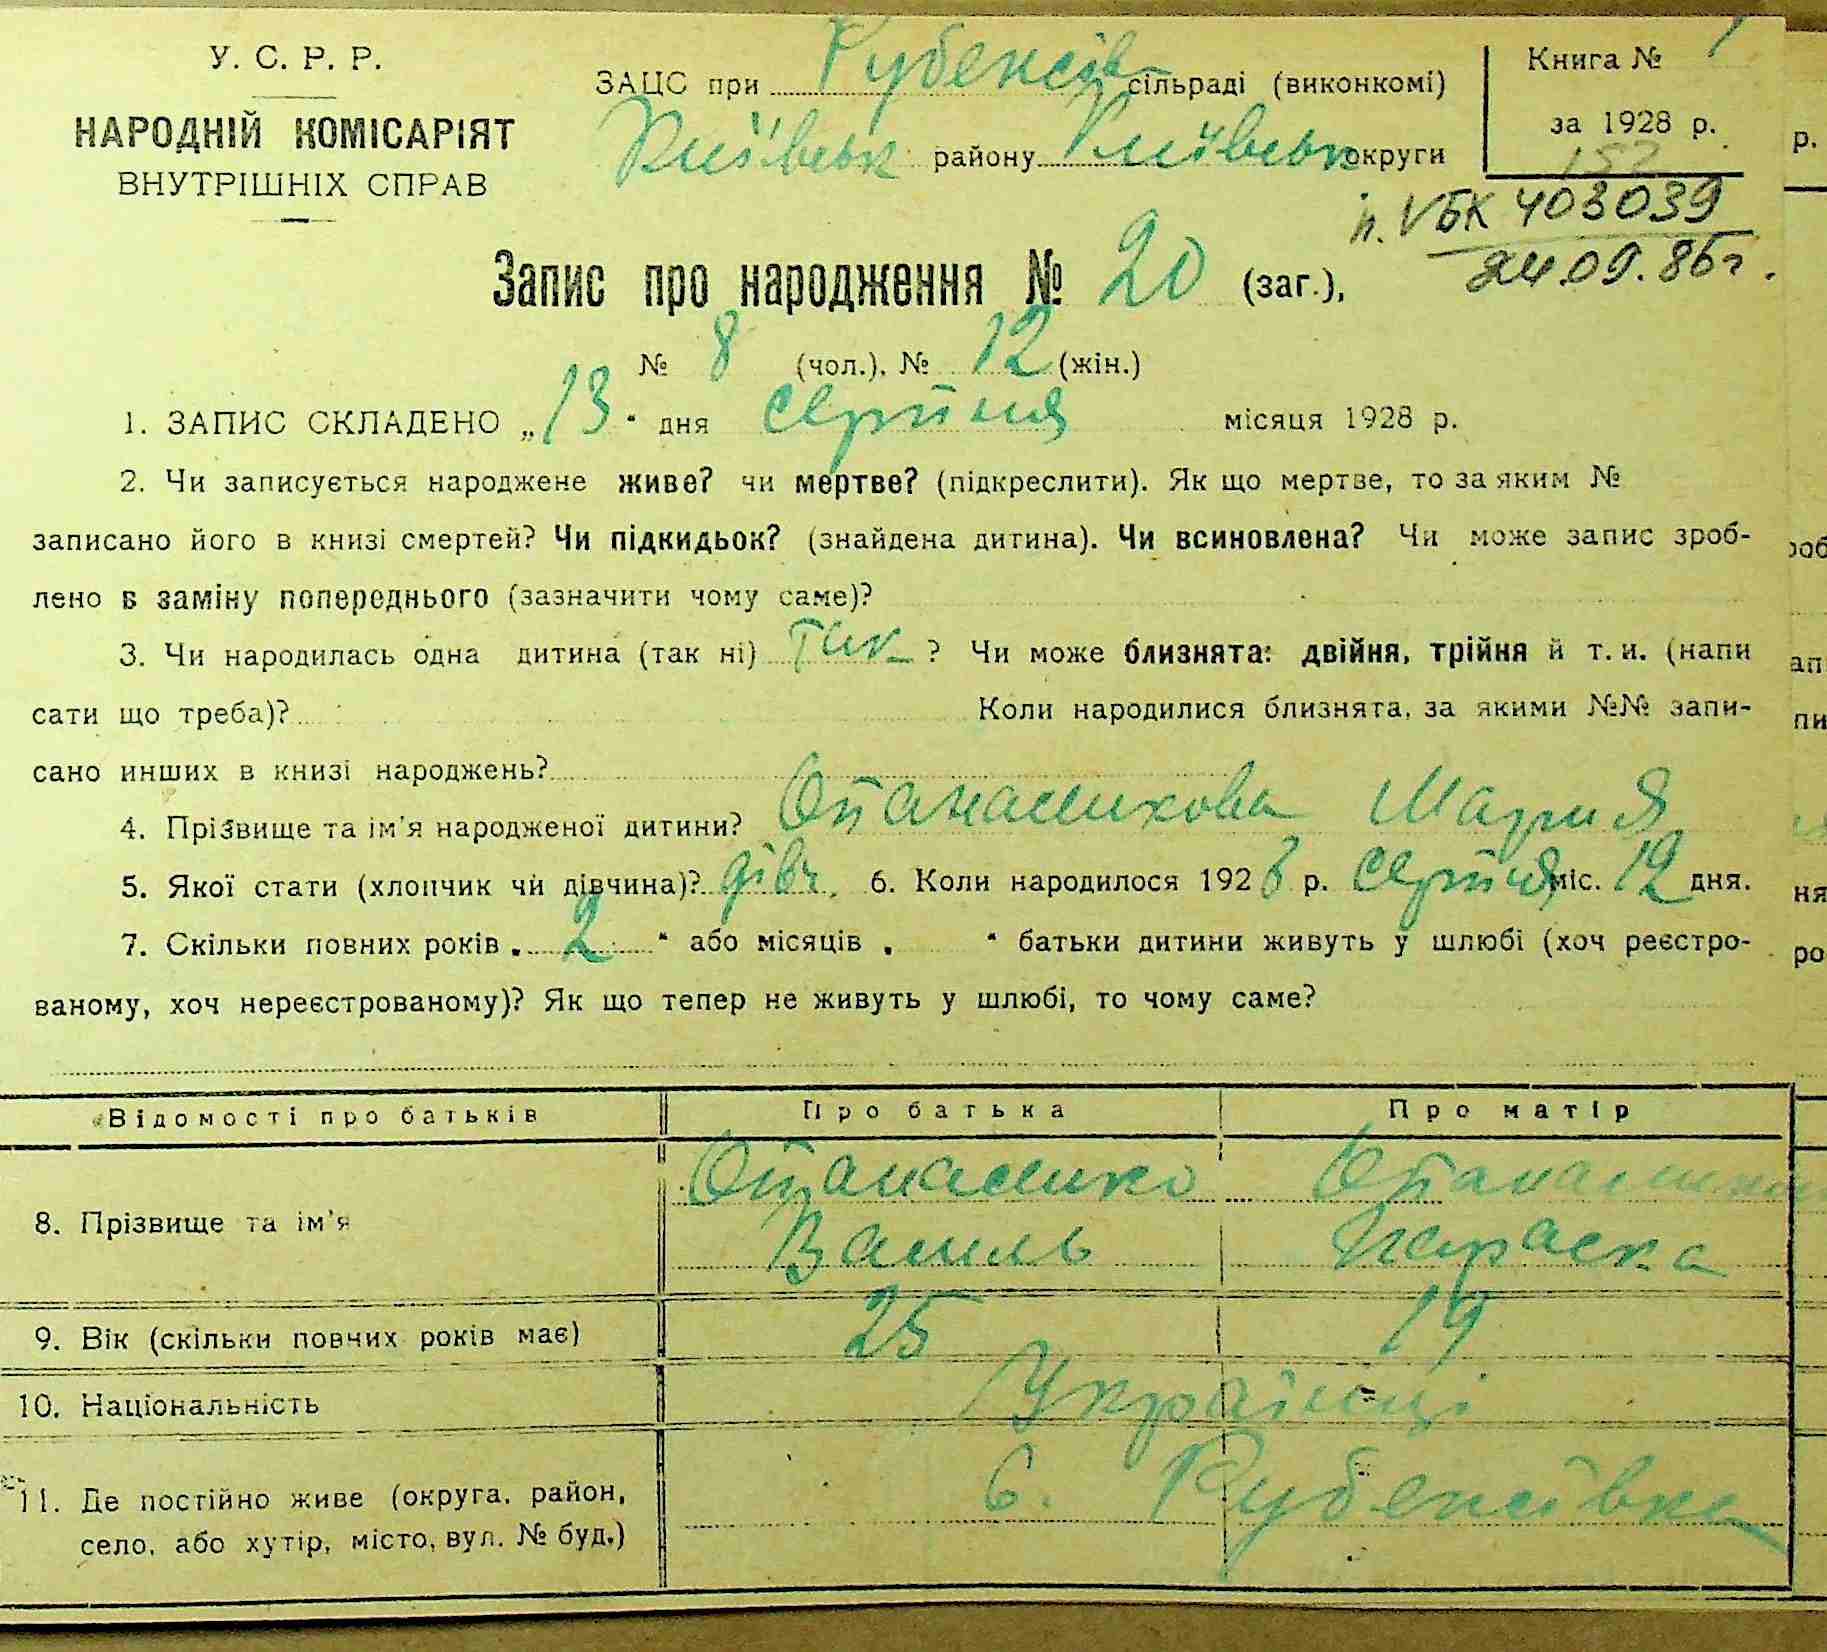 У. С. Р. Р.
НАРОДНІЙ КОМІСАРІЯТ
ВНУТРІШНІХ СПРАВ
ЗАЦС при Рубежів сільраді (виконкомі)
Київськ району Київськ округи
Книга № 1
за 1928 р.
152
п. VБК 403039
24.09.86г.
Запис про народження № 20 (заг.),
№ 8 (чол.), № 12 (жін.)
1. ЗАПИС СКЛАДЕНО „13" дня серпня місяця 1928 р.
2. Чи записується народжене живе? чи мертве? (підкреслити). Як що мертве, то за яким №
записано його в книзі смертей? Чи підкидьок? (знайдена дитина). Чи всиновлена? Чи може запис зроб-
лено в заміну попереднього (зазначити чому саме)?
3. Чи народилась одна дитина (так ні) так? Чи може близнята: двійня, трійня й т. и. (напи
сати що треба)? Коли народилися близнята, за якими №№ запи-
сано инших в книзі народжень?
4. Прізвище та ім'я народженої дитини? Опанасикова Мария
5. Якої стати (хлопчик чи дівчина)? дівч. 6. Коли народилося 1928 р. серпня міс. 12 дня.
7. Скільки повних років „2" або місяців „ " батьки дитини живуть у шлюбі (хоч реєстро-
ваному, хоч нереєстрованому)? Як що тепер не живуть у шлюбі, то чому саме?
Відомості про батьків Про батька Про матір
8. Прізвище та ім'я Опанасико
Василь Параска
9. Вік (скільки повних років має) 25 19
10. Національність Українці
11. Де постійно живе (округа, район,
село, або хутір, місто, вул. № буд.) с.